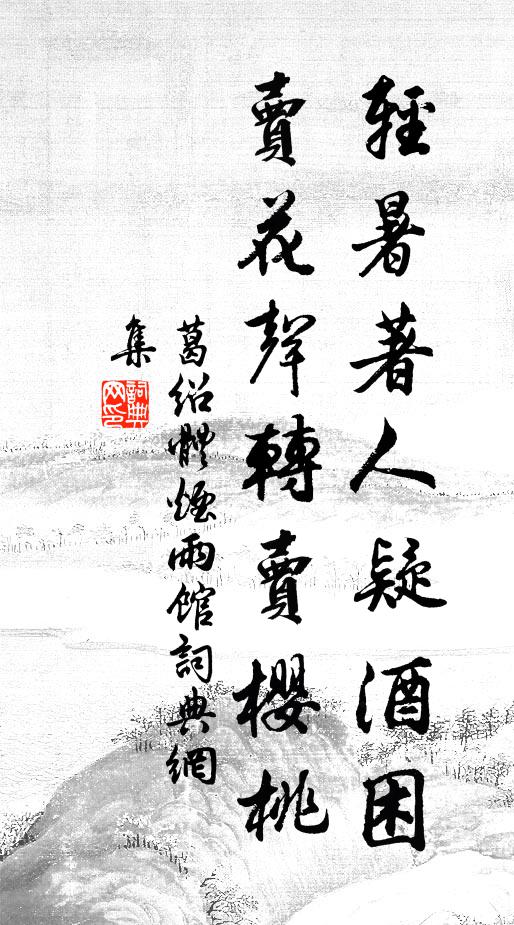 輕暑著人疑酒困
賣花聲轉賣櫻桃
葛紹體煙雨館詞典網
集
詞典網印